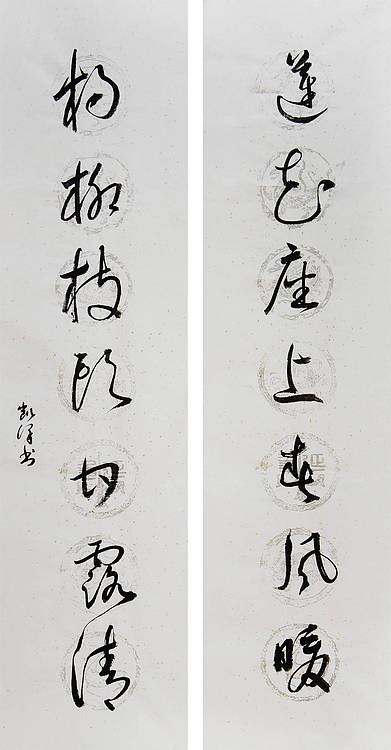 蓮花座上春風暖
楊柳枝頭甘露清
書